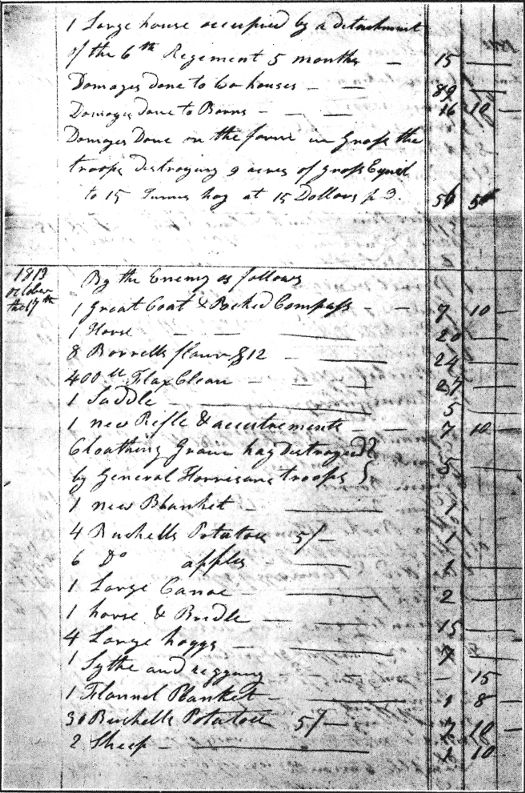 1 Large house occupied by a detachment
of the 6th Regement 5 months - 15 —
Damages done to two houses - — 89 —
Damages done to Barns - — — 16 10 —
Damages Done on the farm in Grass the
troops destroying 9 acres of Grass Equal
to 15 Tunns hay at 15 Dollars p D. 56 5 —
1813
october
the 17th
By the Enemy as follows
1 Great Coat & Pocked Compass — 7 10 —
1 Horse — 20 —
8 Borrells flour $12 — 24 —
400 lb Flax Clean — —
1 Saddle — 5 —
1 new Rifle & accutrements — 7 10 —
Cloathing Grain hay destroyed
by General Harrisons troops 5 —
1 new Blanket — 1 —
4 Bushells Potatoes 5/- 1 —
6 Do apples — 1 —
1 Large Canoe — 2 —
1 horse & Bridle — 15 —
4 Large hoggs — 7 —
1 Sythe and - 15
1 Flannel Blanket — 1 8 —
30 Bushells Potatoes 5/- 7 10
2 Sheep — 1 10